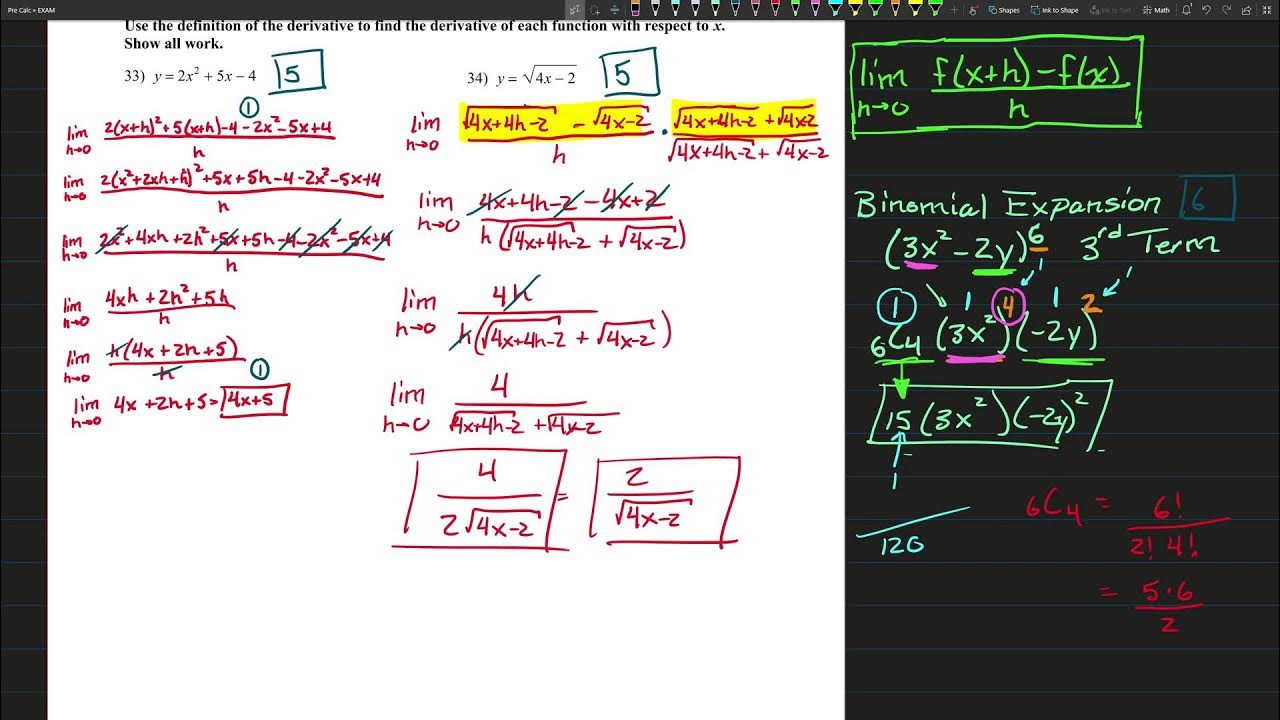 Pre Calc » EXAM
Shapes
Ink to Shape
Ink to Text
Math
Use the definition of the derivative to find the derivative of each function with respect to x.
Show all work.
33) y = 2x² + 5x − 4
5
①
lim h→0 (2(x+h)²+5(x+h)−4−2x²−5x+4)/h
lim h→0 (2(x²+2xh+h)²+5x+5h−4−2x²−5x+4)/h
lim h→0 (2x²+4xh+2h²+5x+5h−4−2x²−5x+4)/h
lim h→0 (4xh+2h²+5h)/h
lim h→0 h(4x+2h+5)/h
①
lim h→0 4x+2h+5 = 4x+5
34) y = √(4x − 2)
5
lim h→0 (√(4x+4h−2) − √(4x−2))/h · (√(4x+4h−2) + √(4x−2))/(√(4x+4h−2) + √(4x−2))
lim h→0 (4x+4h−2−4x+2)/(h(√(4x+4h−2) + √(4x−2)))
lim h→0 4h/(h(√(4x+4h−2) + √(4x−2)))
lim h→0 4/(√(4x+4h−2) + √(4x−2))
4/(2√(4x−2)) = 2/√(4x−2)
lim h→0 (f(x+h)−f(x))/h
Binomial Expansion 6
(3x²−2y)⁶ 3rd Term
① 1 4 1 2
₆C₄ (3x²)(−2y)
15(3x²)(−2y)²
1
120
₆C₄ = 6!/(2! 4!)
= 5·6/2